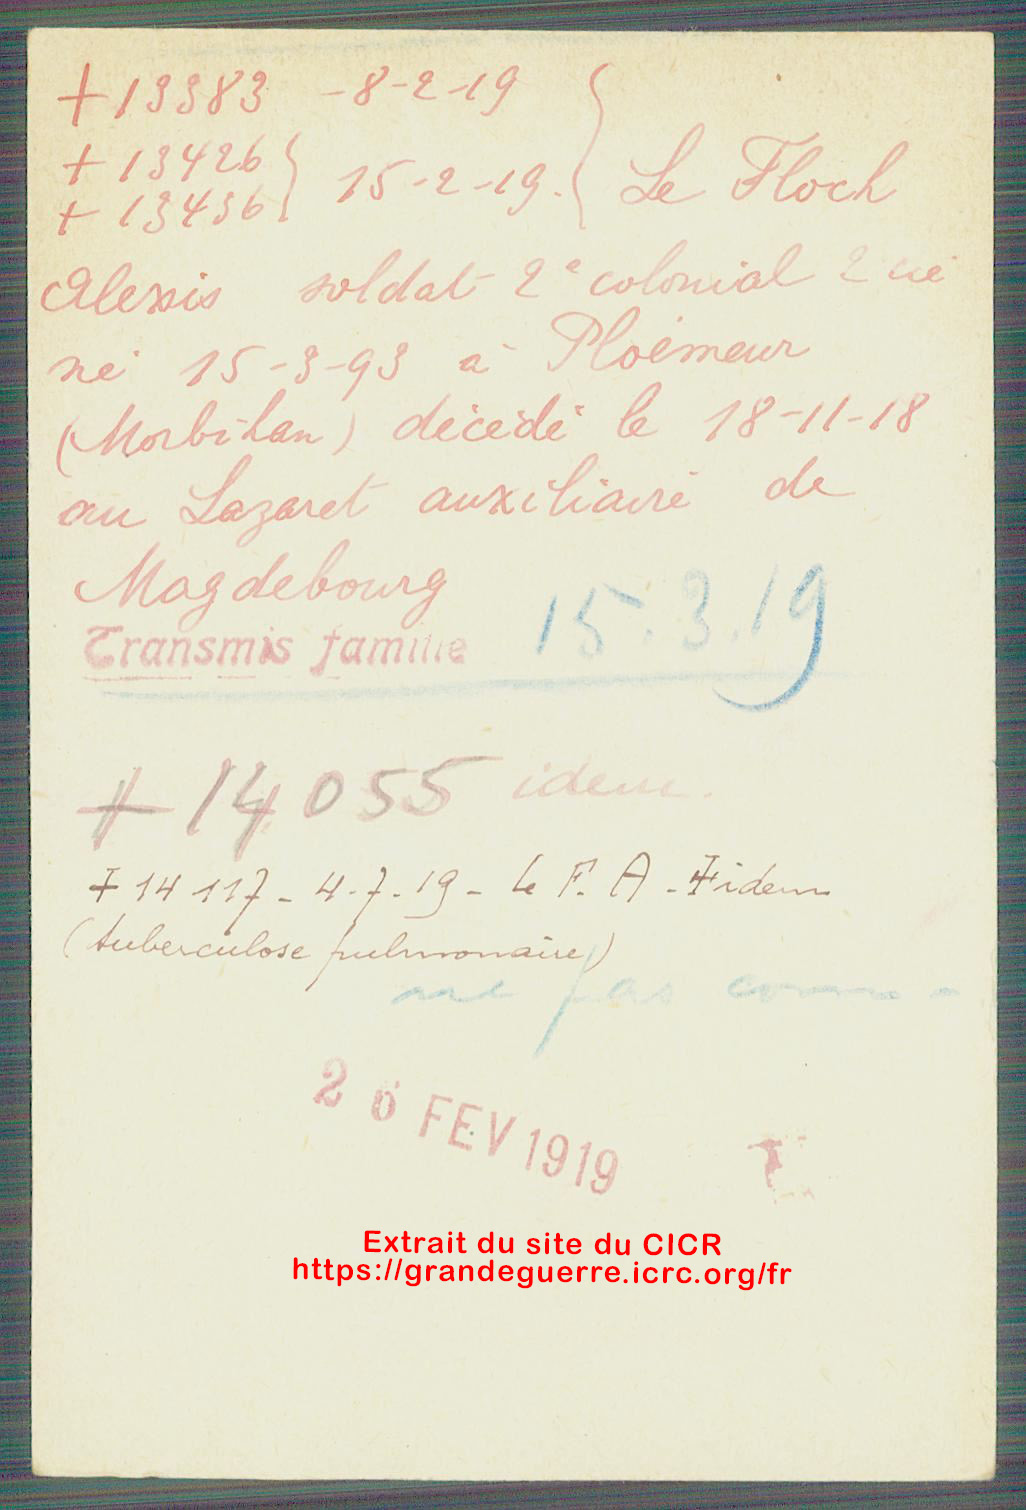 + 13383 - 8-2-19
+ 13426 } 15-2-19. { Le Floch
+ 13436
Alexis soldat 2e colonial 2 cie
né 15-3-93 à Ploëmeur
(Morbihan) décédé le 18-11-18
au Lazaret auxiliaire de
Magdebourg
Transmis famille 15.3.19
+ 14055 idem.
+ 14 117 - 4-7-19 - Le F. A - + idem
(tuberculose pulmonaire)
pas
26 FEV 1919
Extrait du site du CICR
https://grandeguerre.icrc.org/fr